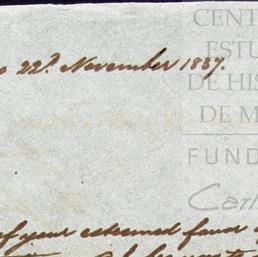 CENT
ESTU
DE HIS
DE M
FUND
Carl
22d. November 1837.
your esteemed favor